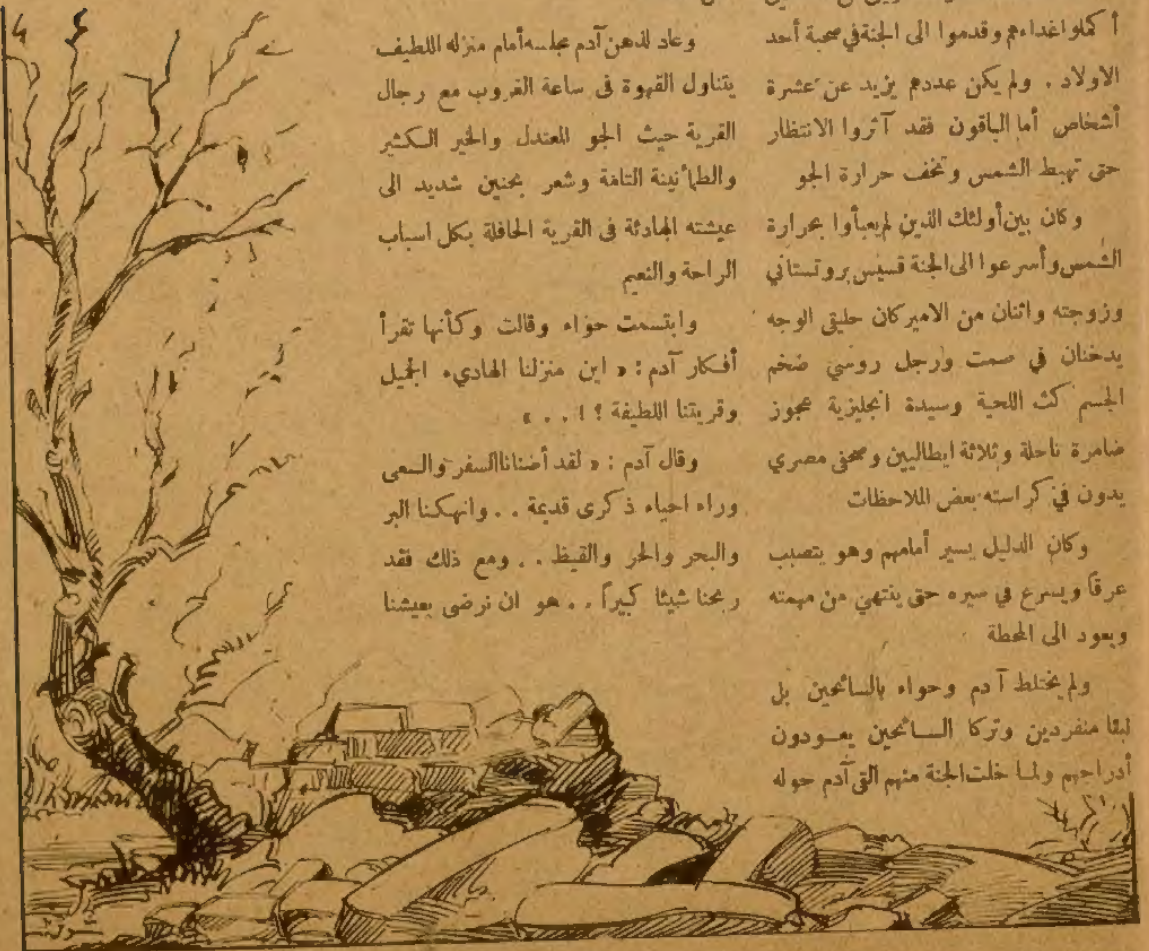 أكملوا غداءهم وقدموا الى الجنة في صحبة أحد
الاولاد . ولم يكن عددهم يزيد عن عشرة
أشخاص أما الباقون فقد آثروا الانتظار
حتى تهبط الشمس وتخف حرارة الجو
وكان بين أولئك الذين لم يعبأوا بحرارة
الشمس وأسرعوا الى الجنة قسيس بروتستاني
وزوجته واثنان من الاميركان حليقى الوجه
يدخنان في صمت ورجل روسي ضخم
الجسم كث اللحية وسيدة انجليزية عجوز
ضامرة ناحلة وثلاثة ايطاليين وصحفى مصري
يدون في كراسته بعض الملاحظات
وكان الدليل يسير أمامهم وهو يتصبب
عرقاً ويسرع في سيره حتى ينتهي من مهمته
ويعود الى المحطة
ولم يختلط آدم وحواء بالسائحين بل
لبثا منفردين وتركا السائحين يعودون
أدراجهم ولما خلت الجنة منهم التى آدم حوله
وعاد لذهن آدم مجلسه أمام منزله اللطيف
يتناول القهوة فى ساعة الغروب مع رجال
القرية حيث الجو المعتدل والخير الكثير
والطمأنينة التامة وشعر بحنين شديد الى
عيشته الهادئة فى القرية الحافلة بكل اسباب
الراحة والنعيم
وابتسمت حواء وقالت وكأنها تقرأ
أفكار آدم : « اين منزلنا الهاديء الجميل
وقريتنا اللطيفة ؟ ! . . »
وقال آدم : « لقد أضنانا السفر والسعى
وراء احياء ذكرى قديمة . . وانهكنا البر
والبحر والحر والقيظ . . ومع ذلك فقد
ربحنا شيئا كبيراً . . هو ان نرضى بعيشنا